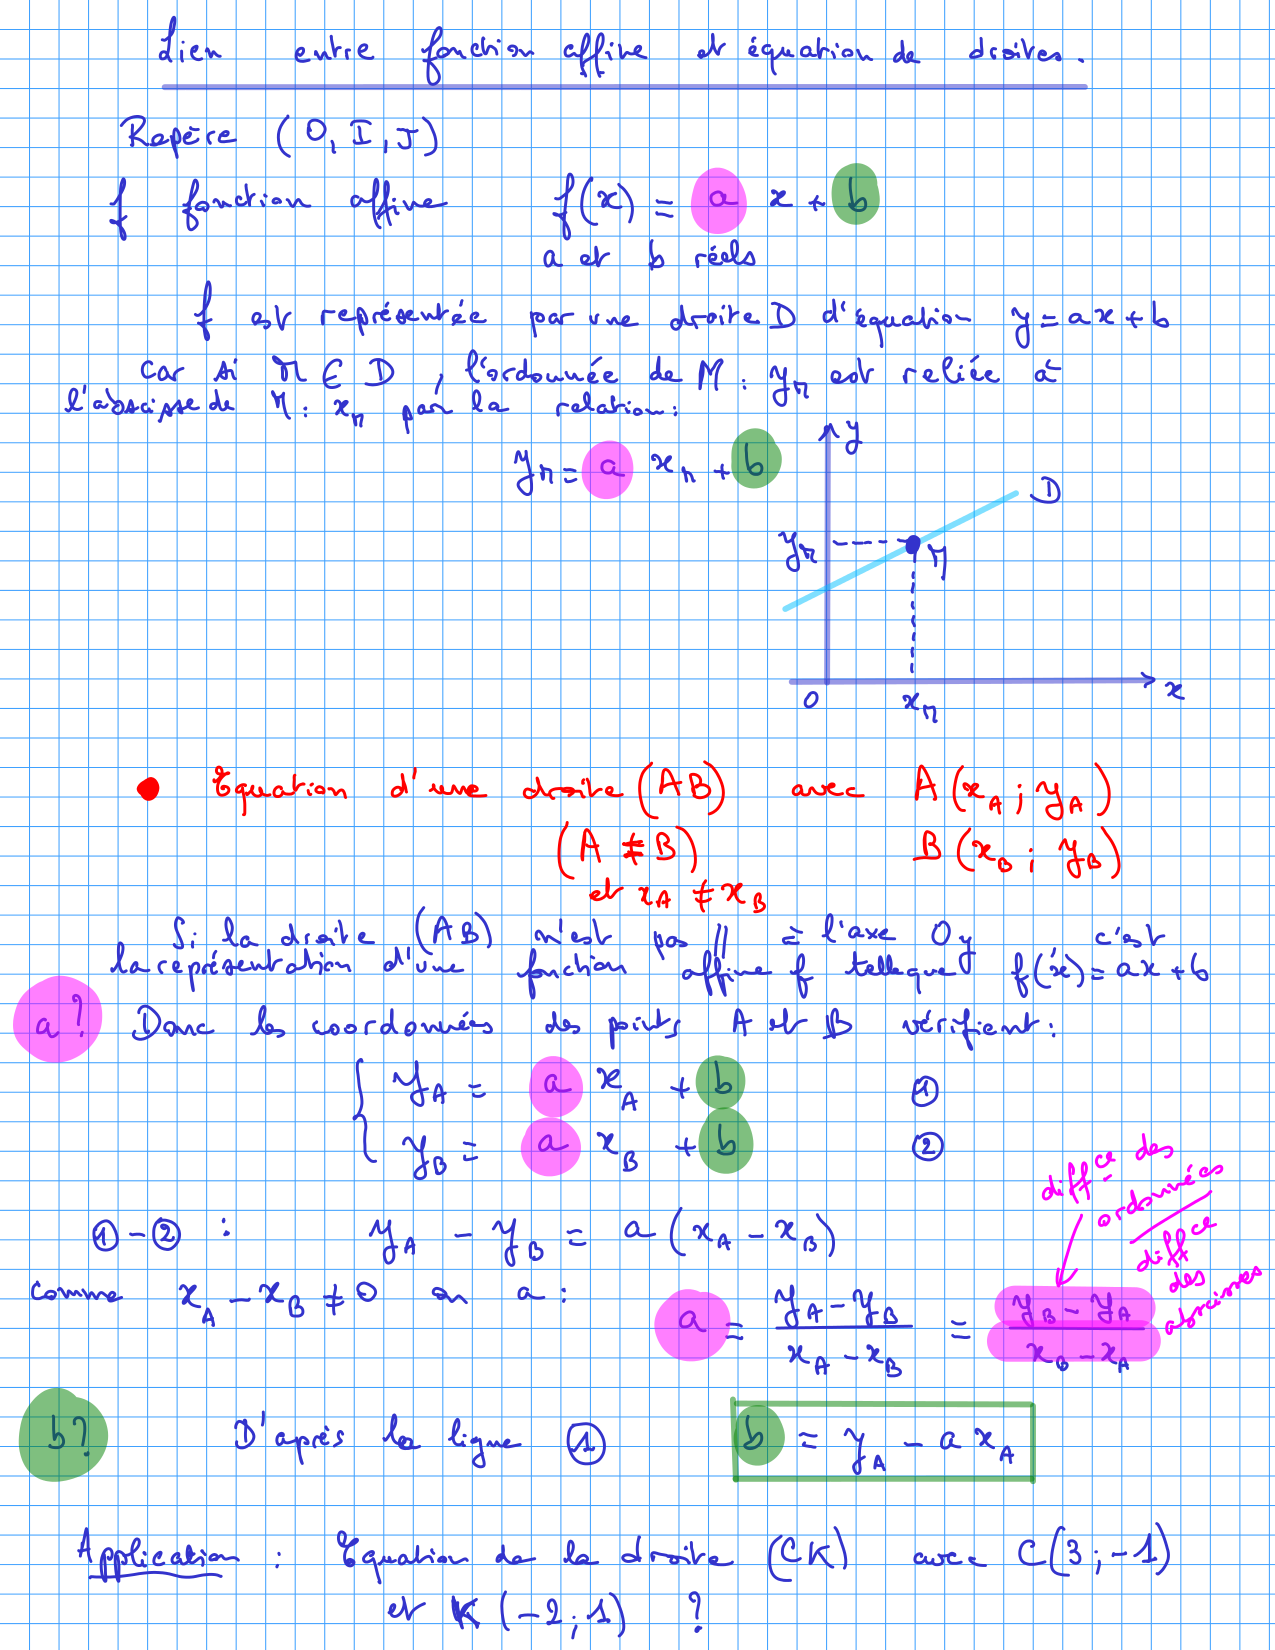 Lien entre fonction affine et équation de droites.
Repère (O, I, J)
f fonction affine f(x) = a x + b
a et b réels
f est représentée par une droite D d'équation y = ax + b
Car si M ∈ D, l'ordonnée de M : y_M est reliée à
l'abscisse de M : x_M par la relation :
y_M = a x_M + b
y
D
y_M
M
O
x_M
x
• Equation d'une droite (AB) avec A (x_A ; y_A)
(A ≠ B) B (x_B ; y_B)
et x_A ≠ x_B
Si la droite (AB) n'est pas // à l'axe Oy c'est
la représentation d'une fonction affine f telle que f(x) = ax + b
a? Donc les coordonnées des points A et B vérifient :
{ y_A = a x_A + b ①
y_B = a x_B + b ②
diffce des
ordonnées
diffce
des
abscisses
① - ② : y_A - y_B = a (x_A - x_B)
comme x_A - x_B ≠ 0 on a :
a = (y_A - y_B)/(x_A - x_B) = (y_B - y_A)/(x_B - x_A)
b? D'après la ligne ① b = y_A - a x_A
Application : Equation de la droite (CK) avec C(3 ; -1)
et K (-2 ; 1) ?